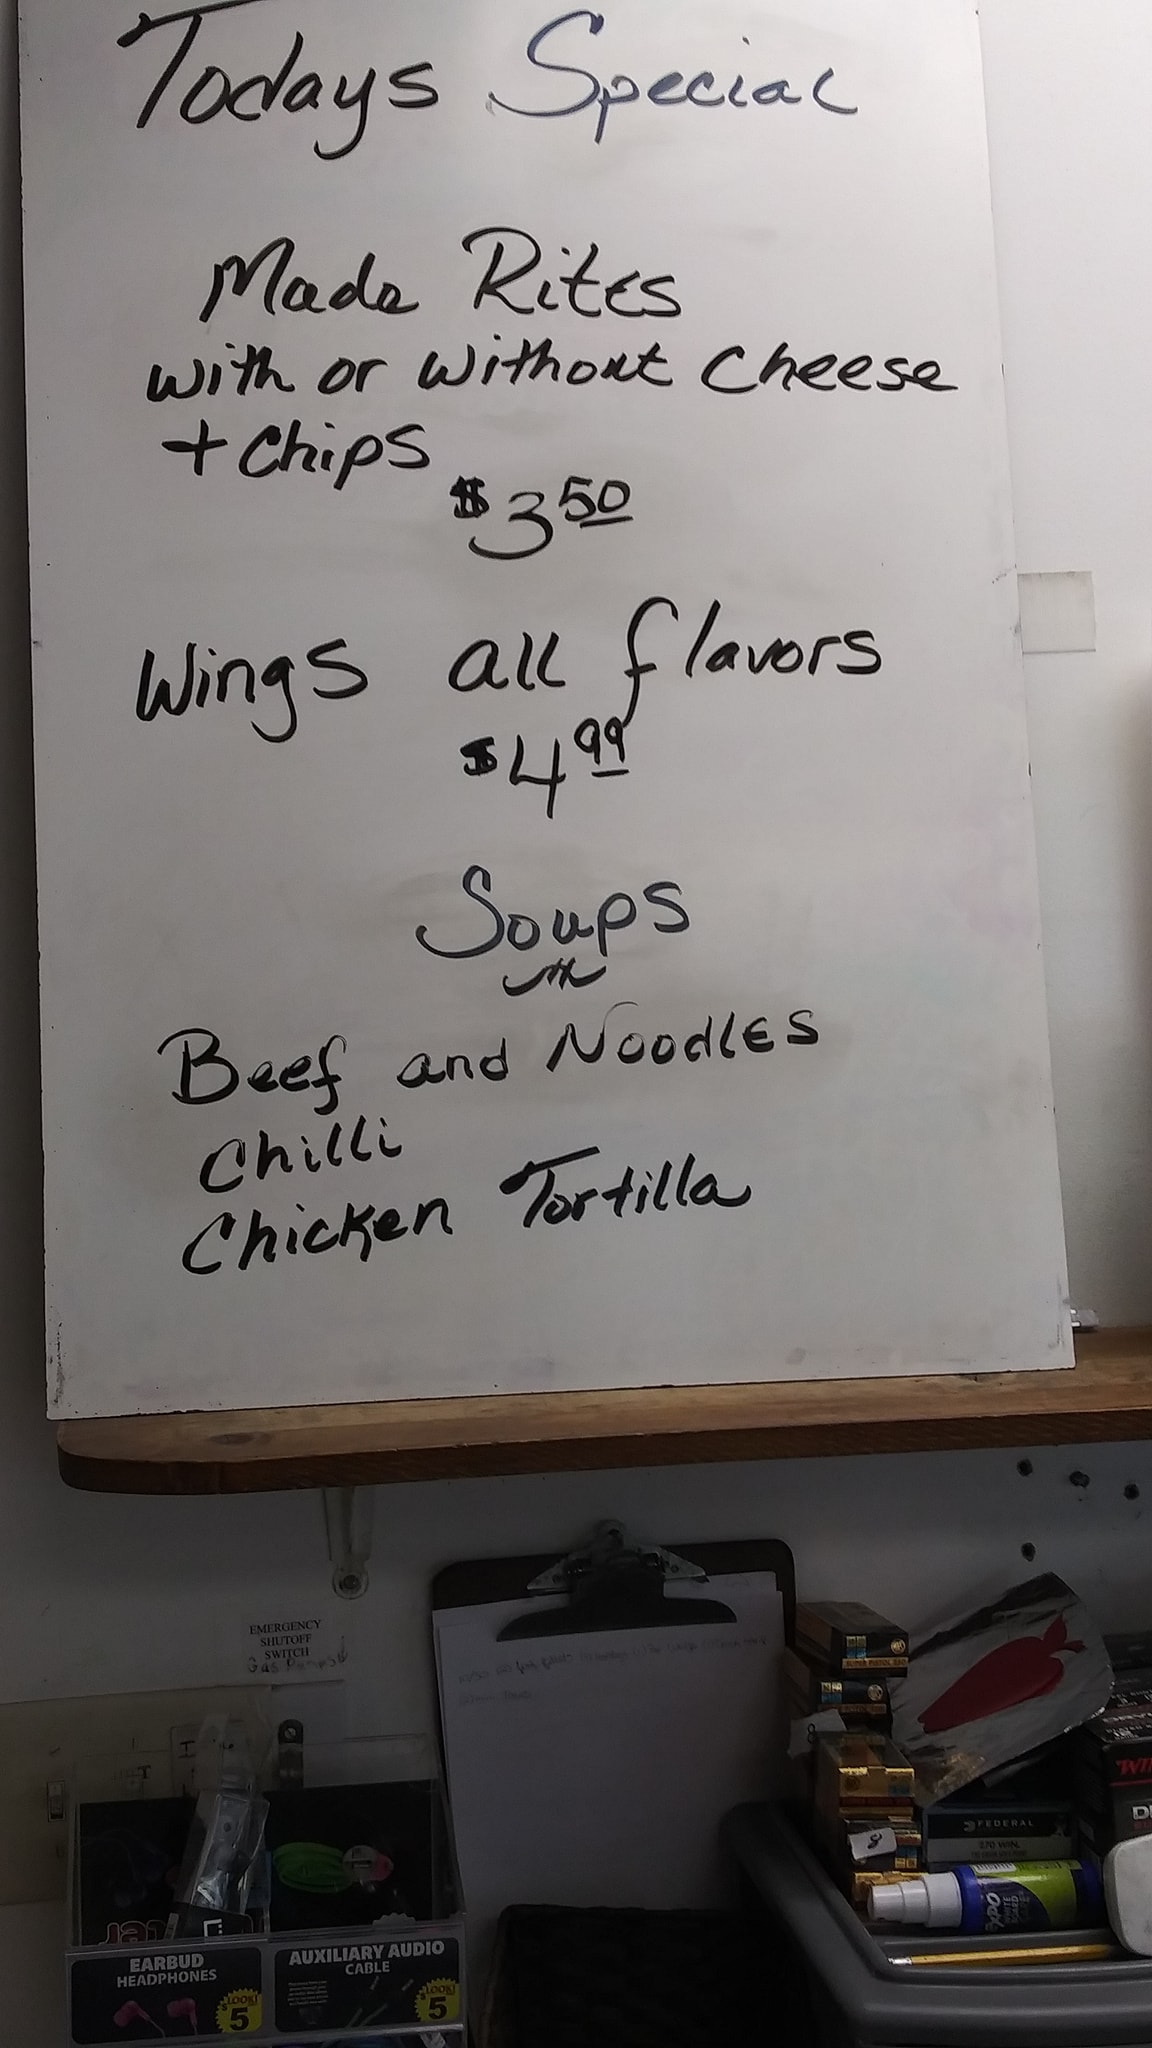 Todays Special
Made Rites
with or without cheese
+ chips
$3 50
Wings all flavors
$4 99
Soups
Beef and Noodles
Chilli
Chicken Tortilla
EMERGENCY
SHUTOFF
SWITCH
Gas Pumps
EARBUD
HEADPHONES
LOOK!
$5
AUXILIARY AUDIO
CABLE
LOOK!
$5
SUPER PISTOL
FEDERAL
270 WIN.
8
EXPO